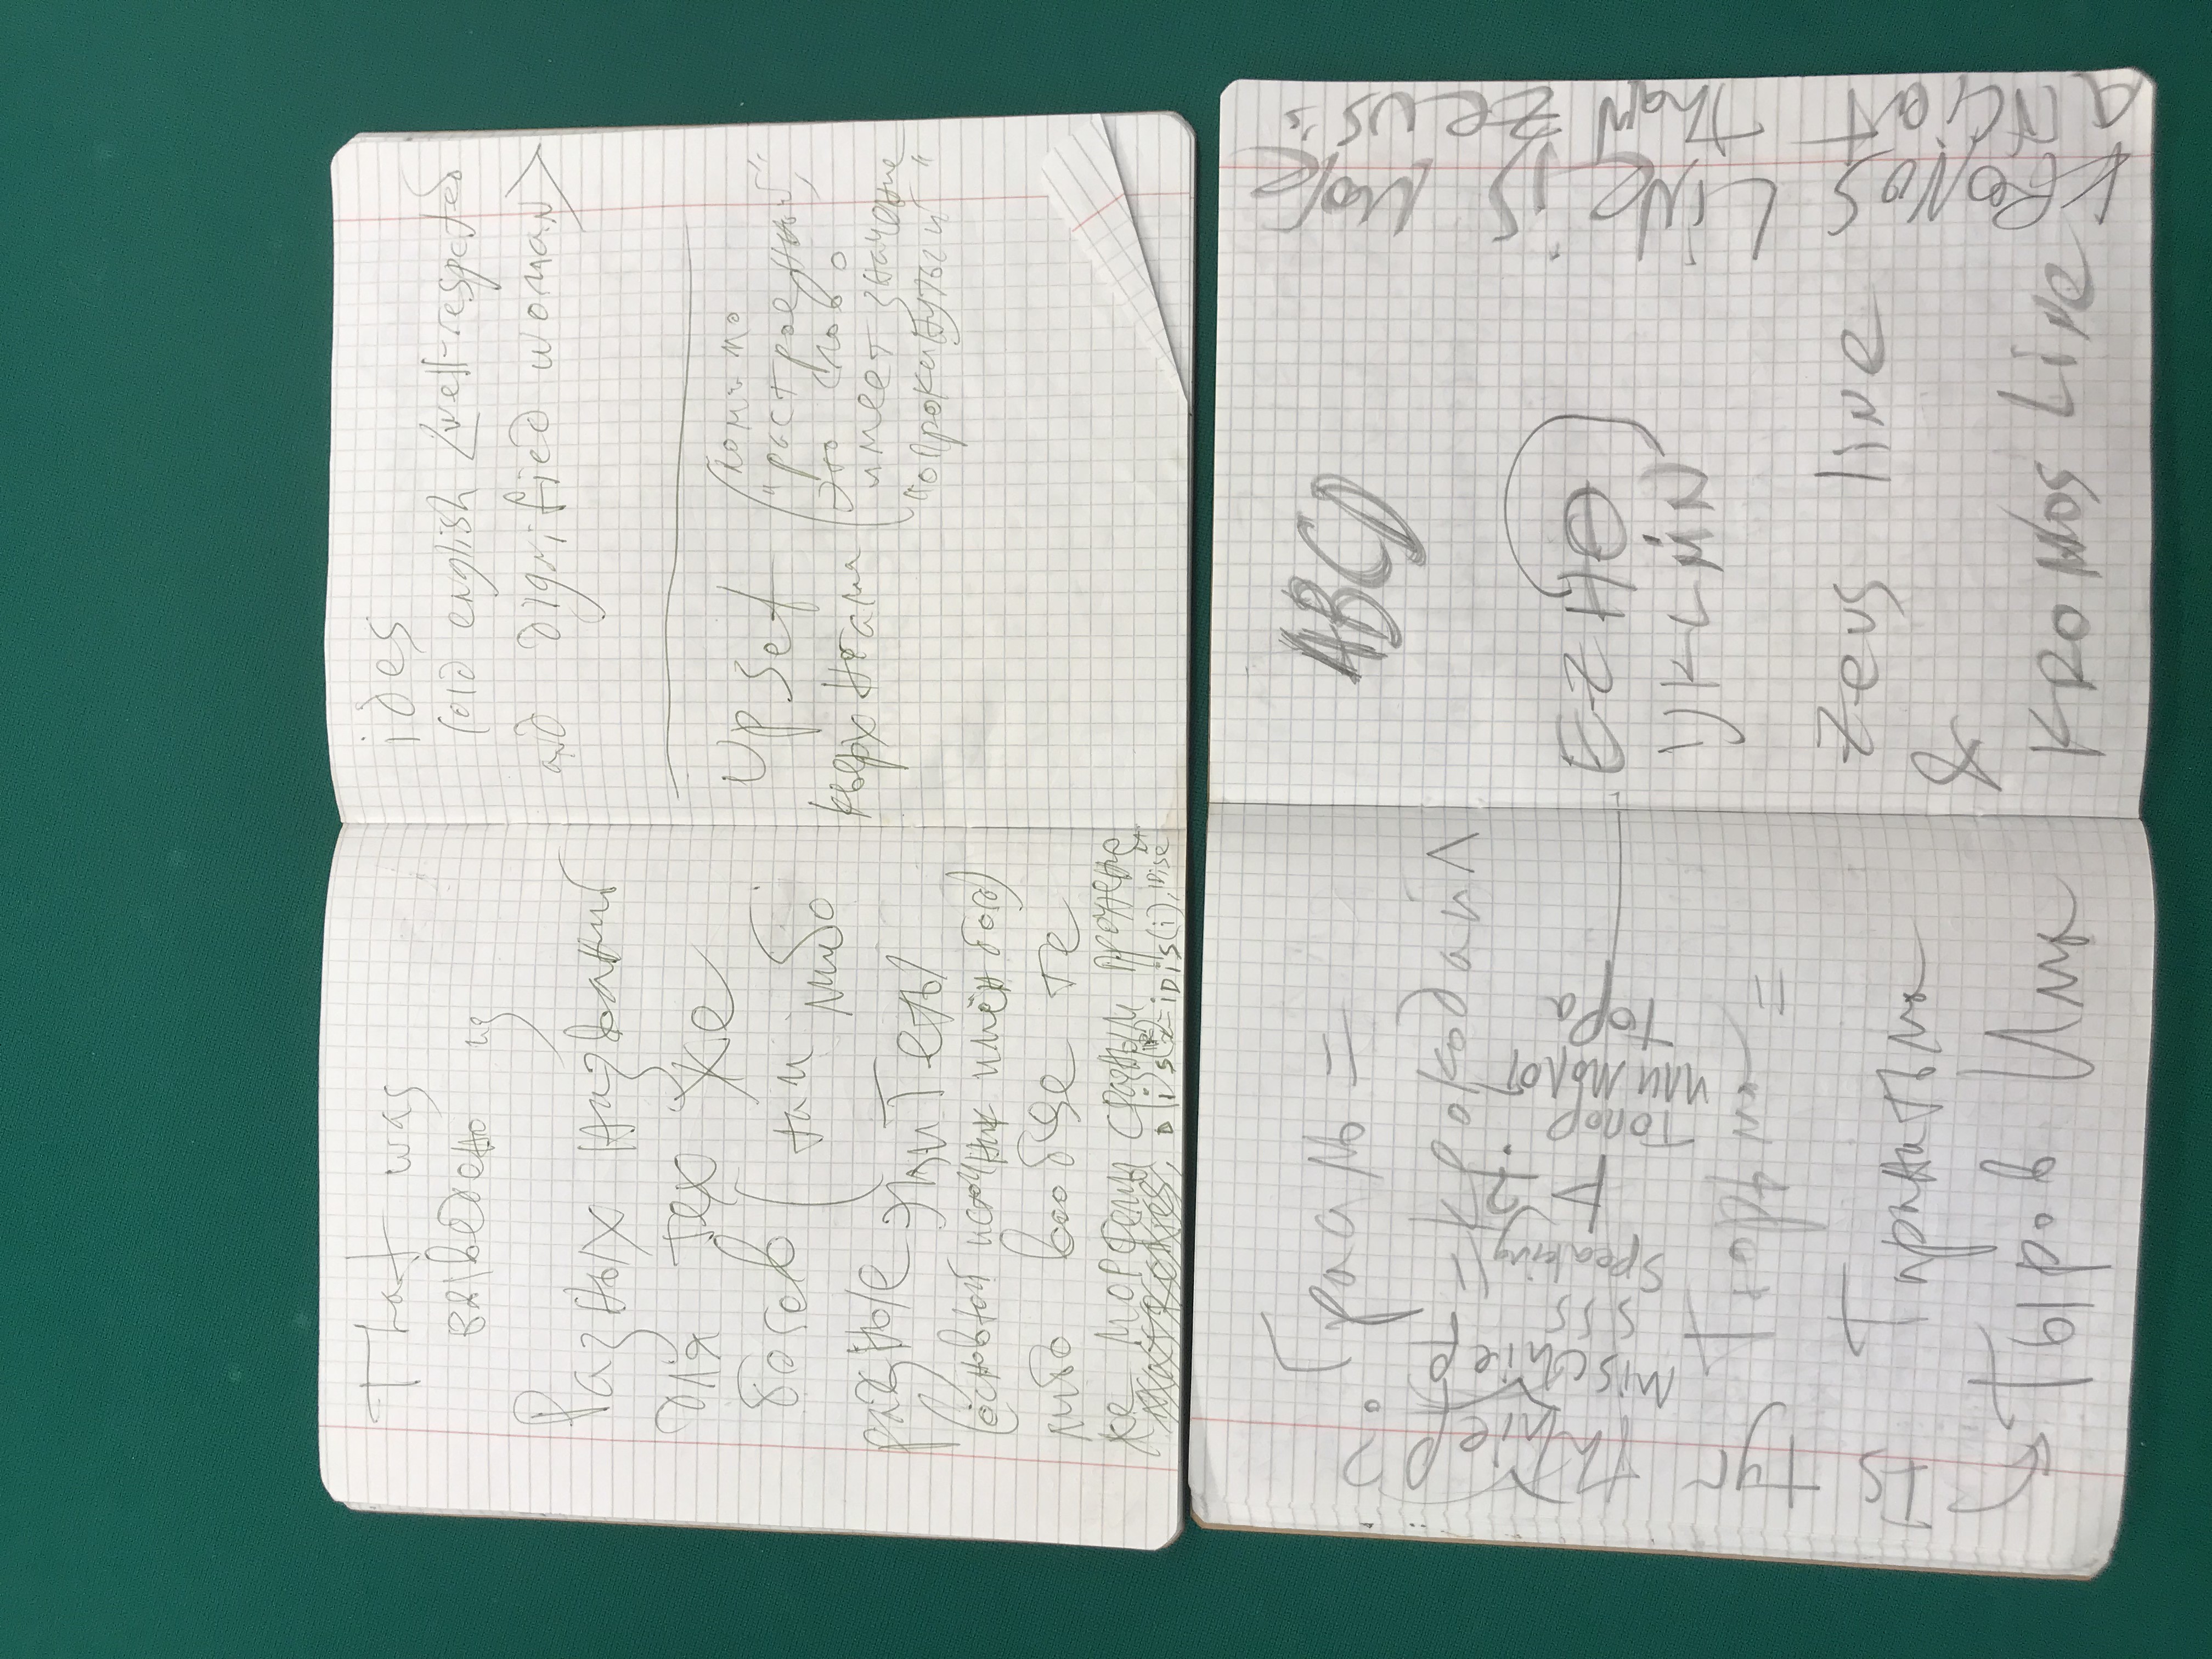 That was
выведено из
Разных названий
для тех же
богов (там либо
разные эпитеты
(основной источник имён богов)
либо вообще те
же морфемы с разным
Dis(
=iDis(i), idise
ides
(old english <well-respected
and dignified woman>
Upset
кверх ногами
(помимо
"растроенный",
это слово
имеет значение
"опрокинутый"
Грааль =
= крокодайл
Is tyr thhief?
mischief
SSS
speaking
Топор
или молот
тора
=
Тиранатьма
Тыров Има
ABCD
EZHΘ
IJKLMN
Zeus line
&
KRONOS Line
KRONOS Line is more
anciant than Zeus's